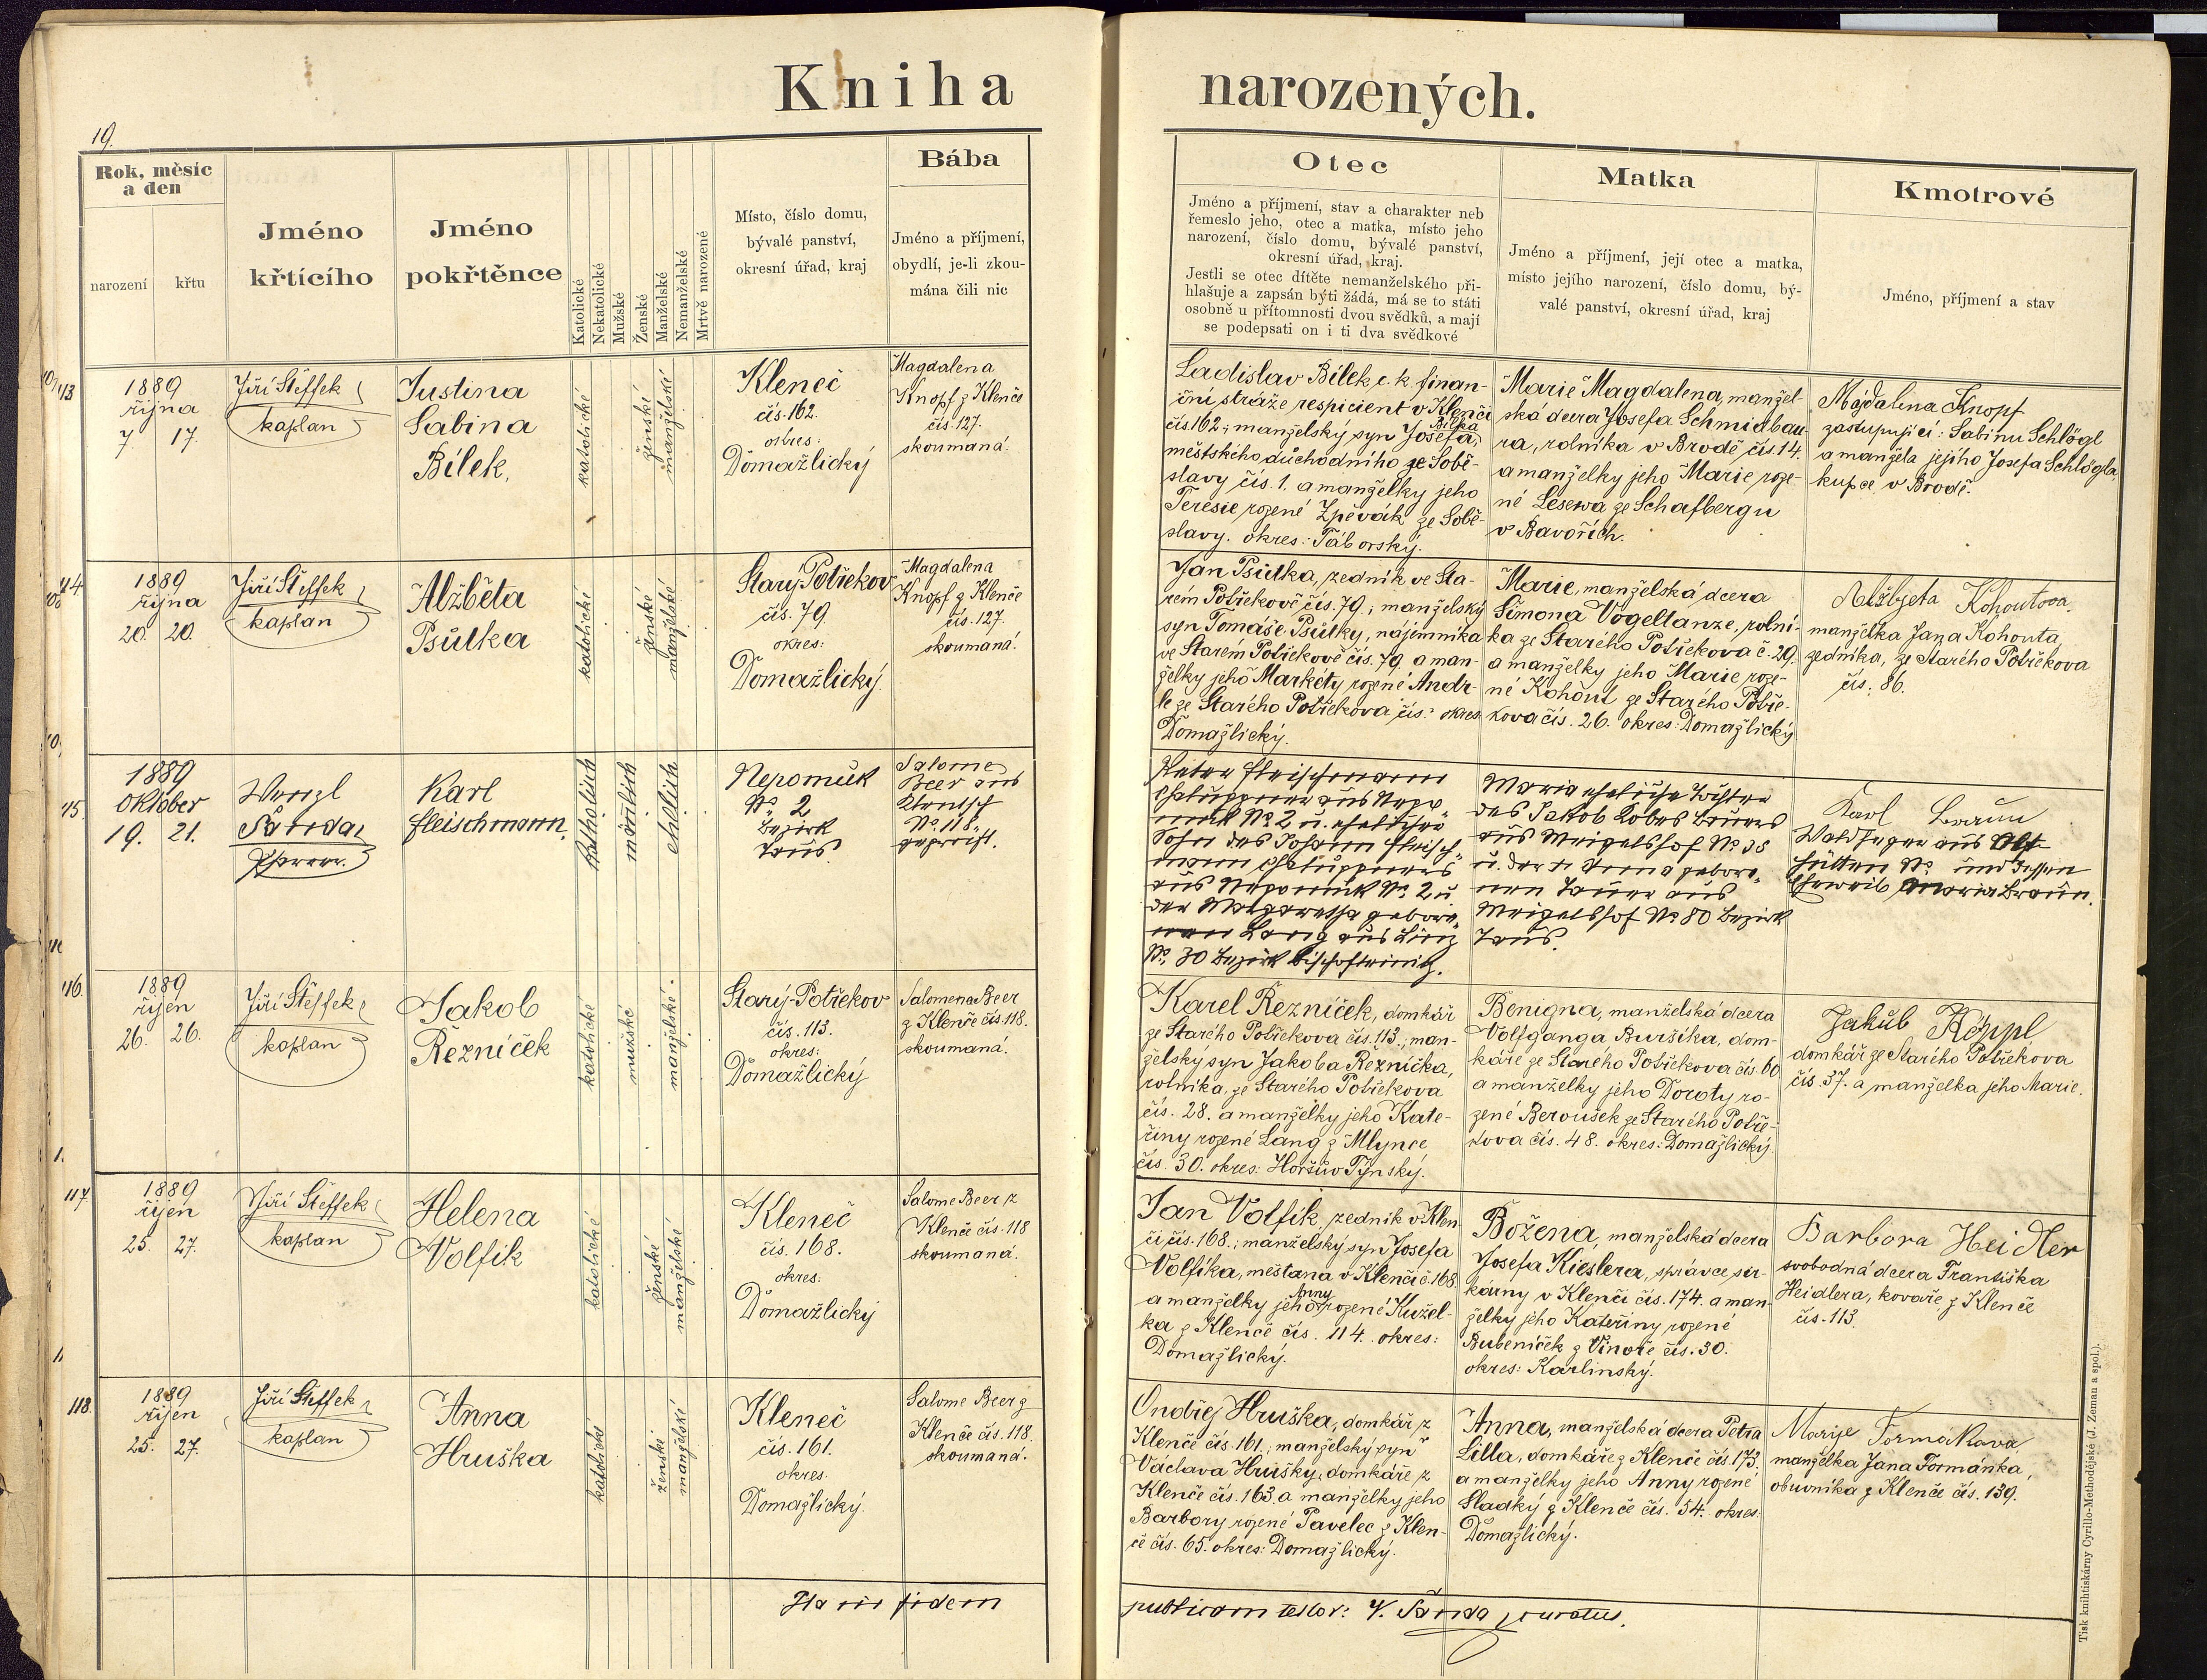 Kniha narozených.
19.
Rok, měsíc
a den
narození
křtu
Jméno
křtícího
Jméno
pokřtěnce
Katolické
Nekatolické
Mužské
Ženské
Manželské
Nemanželské
Mrtvě narozené
Místo, číslo domu,
bývalé panství,
okresní úřad, kraj
Bába
Jméno a příjmení,
obydlí, je-li zkou-
mána čili nic
Otec
Jméno a příjmení, stav a charakter neb
řemeslo jeho, otec a matka, místo jeho
narození, číslo domu, bývalé panství,
okresní úřad, kraj.
Jestli se otec dítěte nemanželského při-
hlašuje a zapsán býti žádá, má se to státi
osobně u přítomnosti dvou svědků, a mají
se podepsati on i ti dva svědkové
Matka
Jméno a příjmení, její otec a matka,
místo jejího narození, číslo domu, bý-
valé panství, okresní úřad, kraj
Kmotrové
Jméno, příjmení a stav
113
1889
října
7 17.
Jiří Šteffek
kaplan
Justina
Sabina
Bílek,
katolické
ženské
manželské
Kleneč
čís. 162.
okres:
Domažlický
Magdalena
Knopf z Klenče
čís. 127.
skoumaná.
Ladislav Bílek c. k. finan-
ční stráže respicient v Klenči
čís 162.; manželský syn Josefa Bílka,
městského důchodního ze Sobě-
slavy čís. 1. a manželky jeho
Teresie rozené Zpěvák ze Sobě-
slavy. okres: Táborský.
Marie Magdalena, manžel-
ská dcera Josefa Schmidbau-
ra, rolníka v Brodě čís. 14.
a manželky jeho Marie roze-
né Lesewa ze Schafbergu
v Bavořích.
Majdalena Knopf
zastupující: Sabinu Schlögl
a manžela jejího Josefa Schlögla,
kupce v Brodě.
114
1889
října
20. 20.
Jiří Šteffek
kaplan
Alžběta
Psůtka
katolické
ženské
manželské
Starý-Potřekov
čís. 79.
okres:
Domažlický.
Magdalena
Knopf z Klenče
čís. 127.
skoumaná.
Jan Psůtka, zedník ve Sta-
rém Potřekově čís. 79.; manželský
syn Tomáše Psůtky, nájemníka
ve Starém Potřekově čís. 79. a man-
želky jeho Markéty rozené Andr-
le ze Starého Potřekova čís.: okres
Domažlický.
Marie, manželská dcera
Šimona Vogeltanze, rolní-
ka ze Starého Potřekova č. 29.
a manželky jeho Marie roze-
né Kohout ze Starého Potře-
kova čís. 26. okres: Domažlický
Alžbjeta Kohoutova,
manželka Jana Kohouta,
zedníka, ze Starého Potřekova
čís: 86.
115.
1889
Oktober
19. 21.
Wenzl
Šanda,
Pfarrer.
Karl
Fleischmann.
Katholisch
mänlich
ehelich
Nepomuk
No. 2
Bezirk
Taus.
Salome
Beer aus
Klentsch
No. 118
geprüft.
Peter Fleischmann
Chaluppner aus Nepo-
muk No. 2 u. ehelicher
Sohn des Johann Fleisch-
mann Chaluppners
aus Nepomuk No. 2 u
der Margaretha gebore-
nen Lang aus Linz
No. 30 Bezirk Bischofteinitz.
Maria eheliche Tochter
des Jakob Kobes Bauers
aus Meigelshof No 38
u. der Anna gebore-
nen Tauer aus
Meigelshof No 80 Bezirk
Taus.
Karl Braun
Waldheger aus Alt-
hütten No. und dessen
Eheweib Maria Braun.
116.
1889
říjen
26. 26.
Jiří Šteffek
kaplan
Jakob
Řezníček
katolické
mužské
manželské.
Starý-Potřekov
čís. 113.
okres:
Domažlický
Salomena Beer
z Klenče čís. 118.
skoumaná.
Karel Řezníček, domkář
ze Starého Potřekova čís. 113.; man-
želský syn Jakoba Řezníčka,
rolníka, ze Starého Potřekova
čís. 28. a manželky jeho Kate-
řiny rozené Lang z Mlynce
čís. 30. okres: Horšův Týnský.
Benigna, manželská dcera
Volfganga Buršíka, dom-
káře ze Starého Potřekova čís. 60
a manželky jeho Doroty ro-
zené Beroušek ze Starého Potře-
kova čís. 48. okres: Domažlický.
Jakub Köppl
domkář ze Starého Potřekova
čís. 37. a manželka jeho Marie.
117.
1889
říjen
25. 27.
Jiří Šteffek
kaplan
Helena
Volfík
katolické
ženské
manželské
Kleneč
čís. 168.
okres:
Domažlický
Salome Beer z
Klenče čís. 118
skoumaná.
Jan Volfík, zedník v Klen-
či čís. 168.; manželský syn Josefa
Volfíka, měšťana v Klenči č. 168.
a manželky jeho Anny rozené Kužel-
ka z Klenče čís. 114. okres:
Domažlický.
Božena, manželská dcera
Josefa Kieslera, správce sir-
kárny v Klenči čís. 174. a man-
želky jeho Kateřiny rozené
Bubeníček z Vinoře čís. 30.
okres: Karlínský.
Barbora Heidler
svobodná dcera Františka
Heidlera, kovaře z Klenče
čís. 113.
118.
1889
říjen
25. 27.
Jiří Šteffek
kaplan
Anna
Hruška
katolické
ženské
manželské
Kleneč
čís. 161.
okres.
Domažlický.
Salome Beer z
Klenče čís. 118.
skoumaná.
Ondřej Hruška, domkář z
Klenče čís. 161.; manželský syn
Václava Hrušky, domkáře z
Klenče čís. 163. a manželky jeho
Barbory rozené Pavelec z Klen-
če čís. 65. okres: Domažlický.
Anna, manželská dcera Petra
Lilla, domkáře z Klenče čís. 173.
a manželky jeho Anny rozené
Sladký z Klenče čís. 54. okres:
Domažlický.
Marije Formakova
manželka Jana Formánka,
obuvníka z Klenče čís. 139.
fidem publicam testor: V. Šanda, curatus.
Tisk knihtiskárny Cyrillo-Methodějské (J. Zeman a spol.).